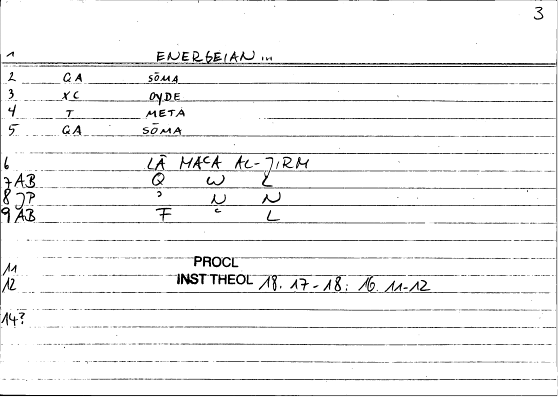 3
1 ENERGEIAN in
2 GA SŌMA
3 XC OYDE
4 T META
5 GA SŌMA
6 LĀ MACA AL-JIRM
7 AB Q W L
8 JP ' N N
9 AB F ʿ L
11 PROCL
12 INST THEOL 18. 17-18: 16. 11-12
14?